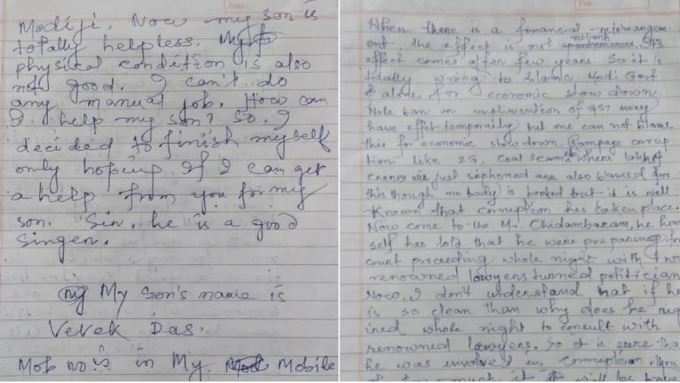 Modiji. Now my son is
totally helpless. My
physical condition is also
not good. I can't do
any manual job. How can
I help my son? So, I
decided to finish myself
only hoping if I can get
a help from you for my
son. Sir, he is a good
Singer.
My Son's name is
Vevek Das.
Mob no is in My Mobile
When there is a financial
the effect is not
effect comes after few years. So it is
totally wrong to blame Modi Govt
alone for economic slow down
Note ban or of GST may
have effect temporarily but one can not blame
this for economic slow down.
like 2G, Coal Scam where
are just siphoned are also
this though no body is booked but it is well
Known that corruption has taken place.
Now come to the Mr Chidambaram, he
self has told that he were preparing
court proceeding whole night with
renowned lawyers turned politician
Now, I don't understand that if he
is so clean than why does he
whole night to consult with
renowned lawyers. So it is sure
he was involved in corruption
it will be